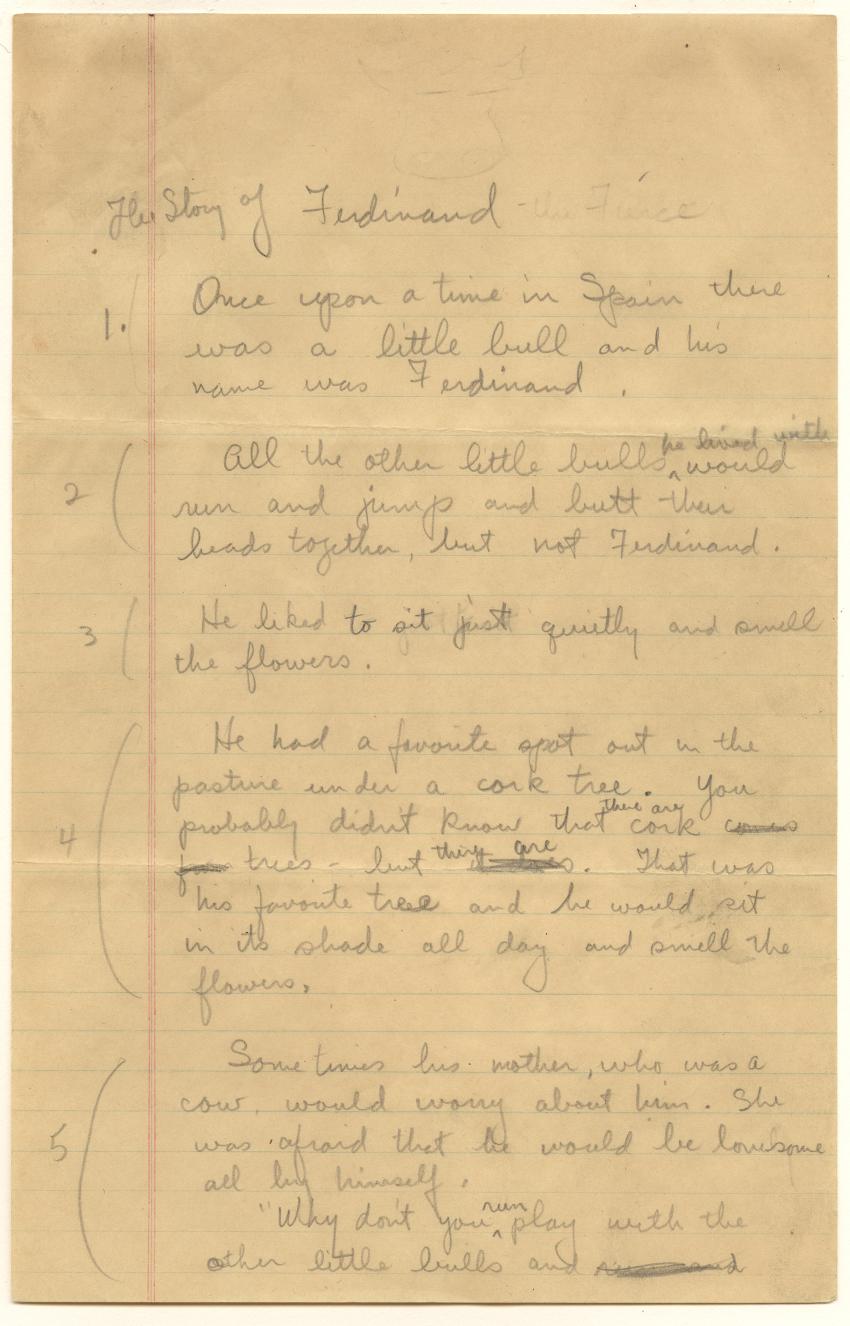 The Story of Ferdinand - the Fierce
1. Once upon a time in Spain there
was a little bull and his
name was Ferdinand.
he lived with
2 All the other little bulls ^ would
run and jump and butt their
heads together, but not Ferdinand.
3 He liked to sit just quietly and smell
the flowers.
He had a favorite spot out in the
pasture under a cork tree. You
there are
probably didn't know that cork comes
they are
4 from trees - but it does. That was
his favorite tree and he would sit
in its shade all day and smell the
flowers.
Sometimes his mother, who was a
cow, would worry about him. She
5 was afraid that he would be lonesome
all by himself.
run
"Why don't you ^ play with the
other little bulls and